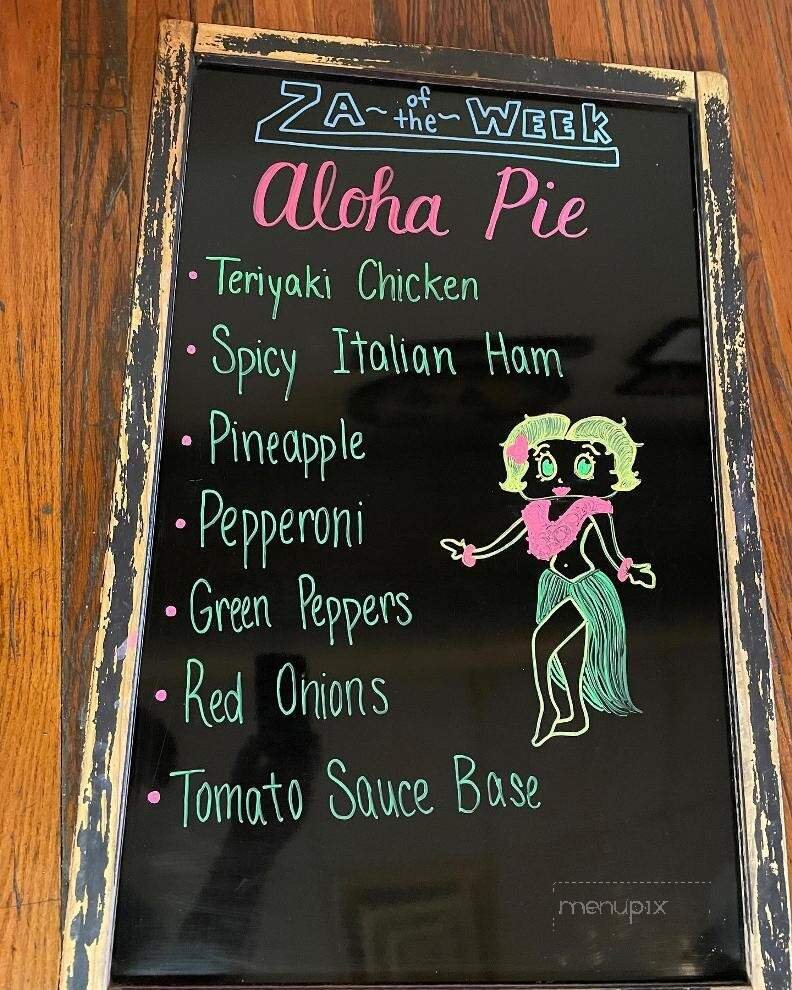 ZA ~ of the ~ WEEK
Aloha Pie
• Teriyaki Chicken
• Spicy Italian Ham
• Pineapple
• Pepperoni
• Green Peppers
• Red Onions
• Tomato Sauce Base
menupix